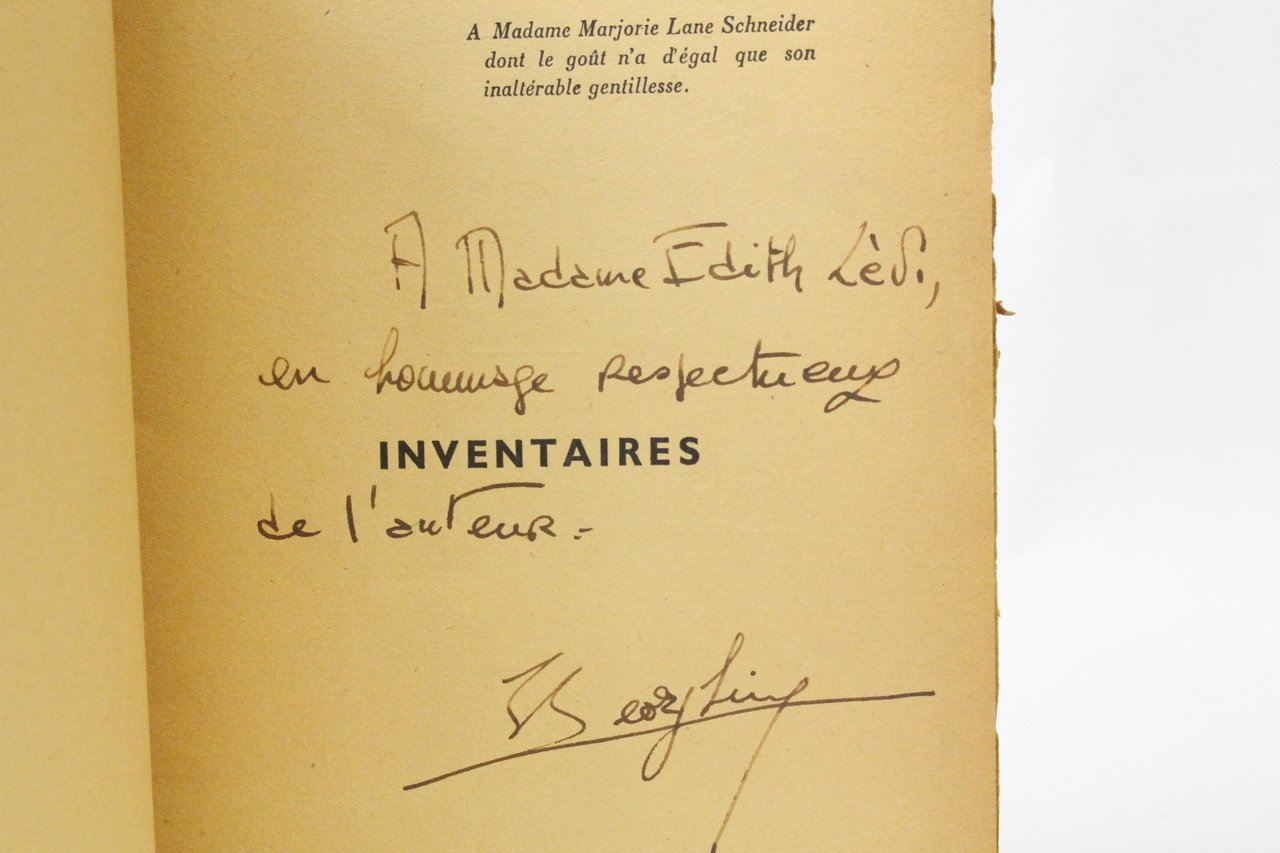 A Madame Marjorie Lane Schneider
dont le goût n'a d'égal que son
inaltérable gentillesse.
A Madame Edith Lèvi,
en hommage respectueux
INVENTAIRES
de l'auteur.-